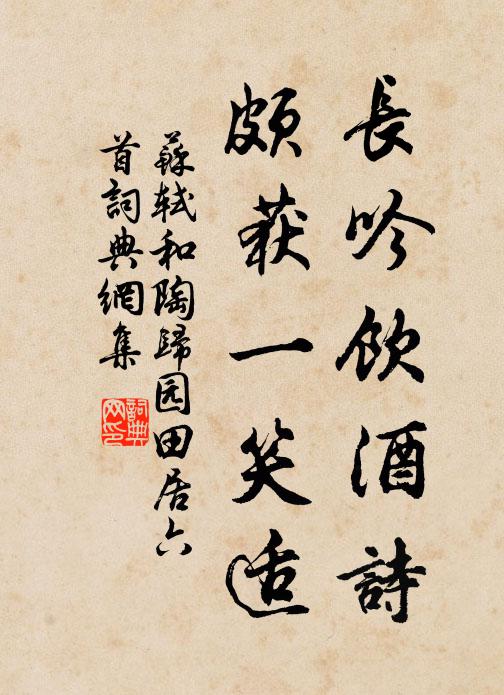 長吟飲酒詩
頗获一笑适
蘇軾和陶歸园田居六
首詞典網集
詞典
网印